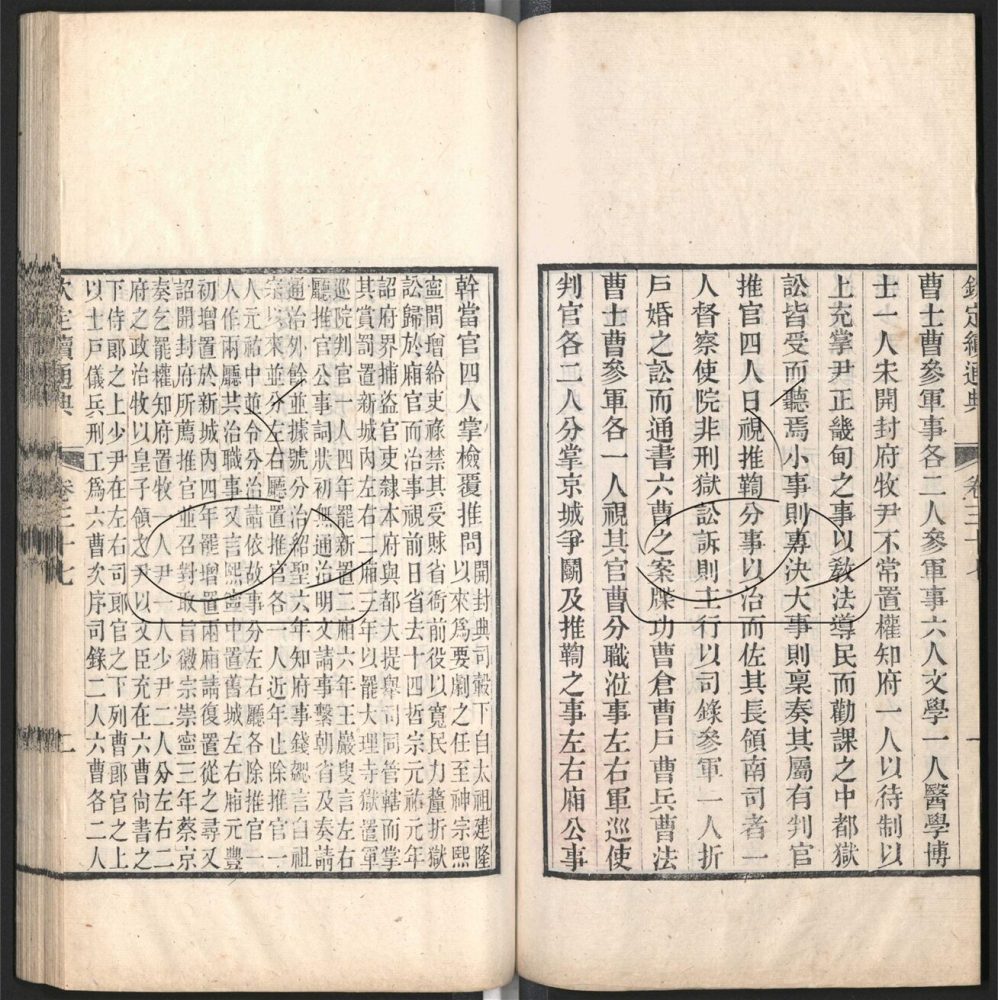 欽定續通典 卷三十七 一
曹士曹參軍事各二人參軍事六人文學一人醫學博
士一人宋開封府牧尹不常置權知府一人以待制以
上充掌尹正畿甸之事以敎法導民而勸課之中都獄
訟皆受而聽焉小事則專決大事則稟奏其屬有判官
推官四人日視推鞫分事以治而佐其長領南司者一
人督察使院非刑獄訟訴則主行以司錄參軍一人折
戶婚之訟而通書六曹之案牒功曹倉曹戶曹兵曹法
曹士曹參軍各一人視其官曹分職涖事左右軍巡使
判官各二人分掌京城爭鬬及推鞫之事左右廂公事
幹當官四人掌檢覆推問
開封典司轂下自太祖建隆
以來爲要劇之任至神宗熙
寧間增給吏祿禁其受賕省衙前役以寬民力釐折獄
訟歸於廂官而治事視前日省去十四哲宗元祐元年
詔府界捕盜官吏隸本府與都大提舉司同管轄而掌
其賞罰置新城內左右二廂三年以罷大理寺獄置軍
巡院判官一人四年罷新置二廂六年王巖叟言左右
廳推官公事詞狀初無通治明文請事繫朝省及奏請
通治外餘並據號分治紹聖六年知府事錢勰言自祖
宗以來並分左右廳置推官各一人近年止除推官一
人元祐中並令分治請依故事分左右廳各除推官一
人作兩廳共治職事又言熙寧中置舊城左右廂元豐
初增置於新城內四年罷增置兩廂請復置從之尋又
詔開封府所薦推官並召對取旨徽宗崇寧三年蔡京
奏乞罷權知府置牧一人尹一人少尹二人分左右二
府之政治牧以皇子領之尹以文臣充在六曹尚書之
下侍郞之上少尹在左右司郞官之下列曹郞官之上
以士戶儀兵刑工爲六曹次序司錄二人六曹各二人
欽定續通典 卷三十七 一